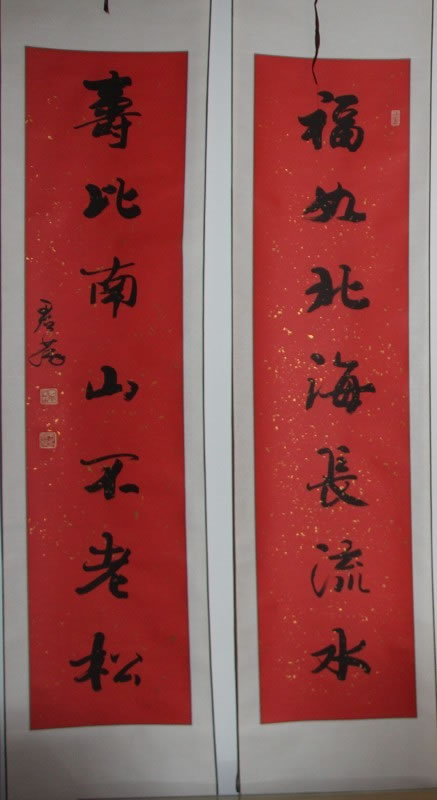 福如北海長流水
壽比南山不老松